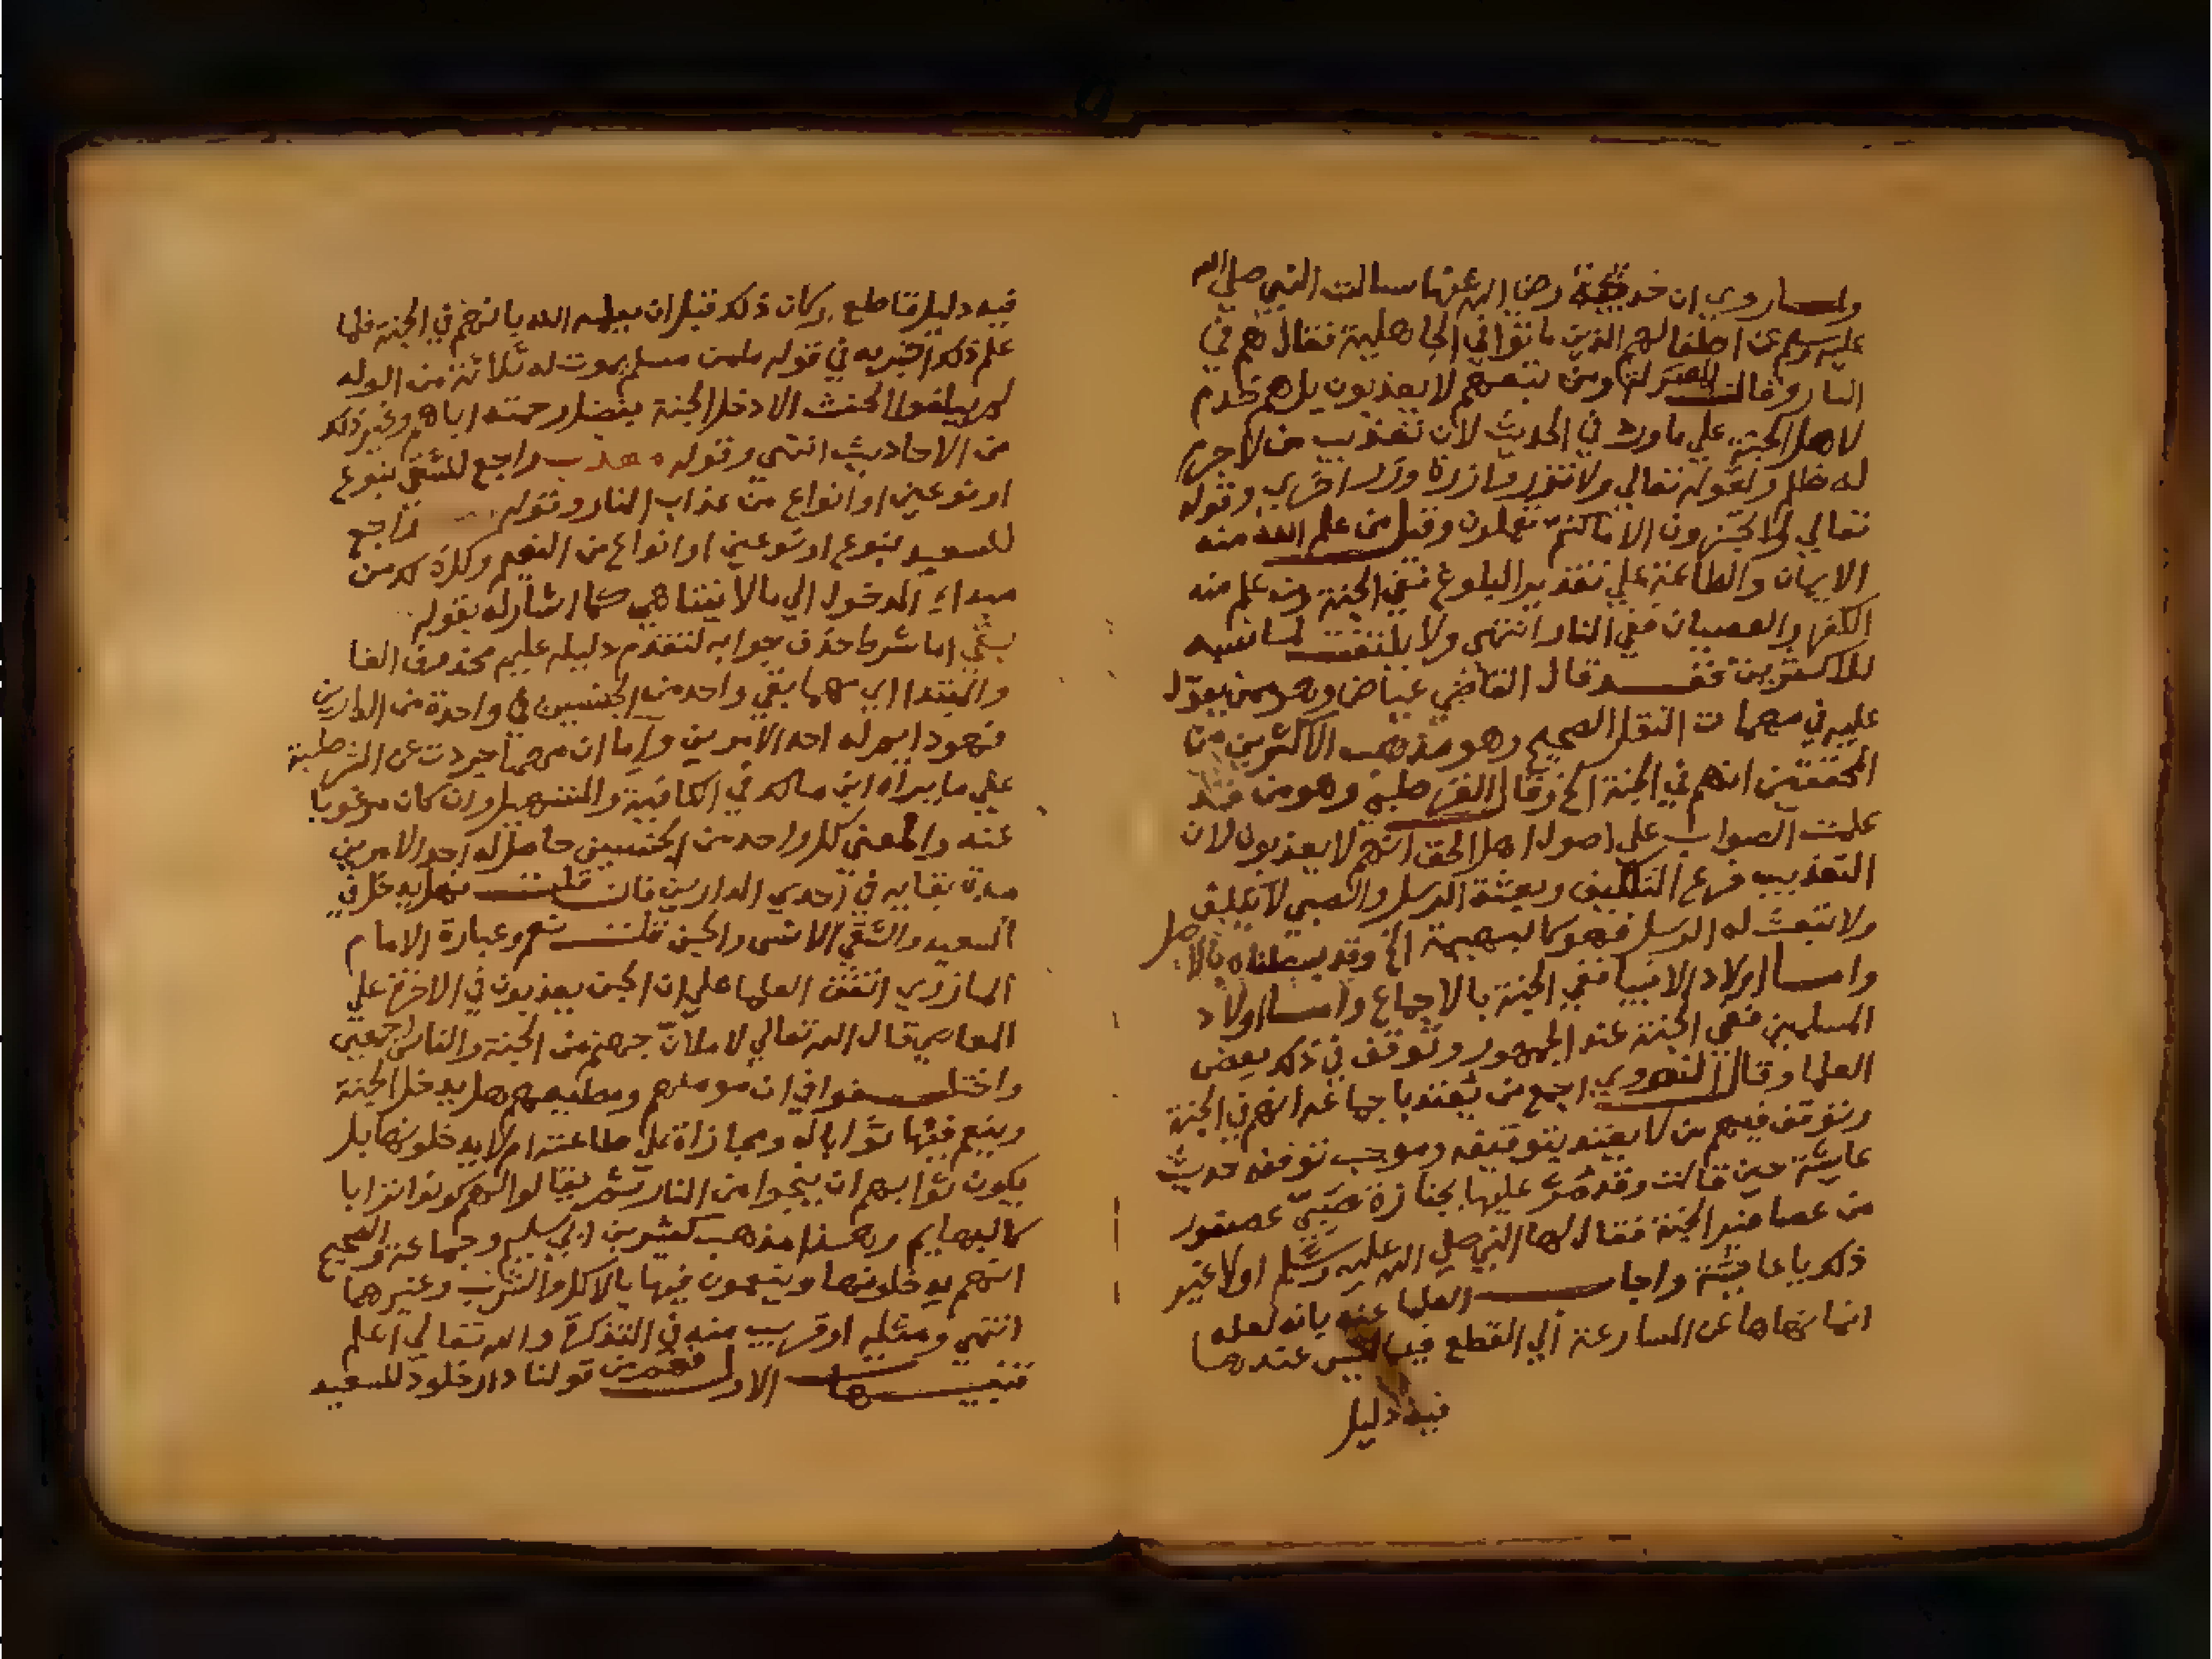 ولما روي ان خديجة رضي الله عنها سالت النبي صلي الله
عليه وسلم عن اطفالهم الذين ماتوا في الجاهلية فقال هم في
النار وقالت المعتزلة ومن تبعهم لا يعذبون بل هم خدم
لاهل الجنة علي ما ورد في الحديث لان تعذيب من لا جرم
له ظلم ولقوله تعالي ولا تزر وازرة وزر اخري وقوله
تعالي ولا تجزون الا ما كنتم تعملون وقيل من علم الله منه
الايمان والطاعة علي تقدير البلوغ ففي الجنة ومن علم منه
الكفر والعصيان ففي النار انتهي ولا يلتفت لما نسبه
للاكثرين فقد قال القاضي عياض وهو ممن يعول
عليه في مهمات النقل الصحيح وهو مذهب الاكثرين من
المحققين انهم في الجنة الخ وقال القرطبي وهو من قد
علمت الصواب علي اصول اهل الحق انهم لا يعذبون لان
التعذيب فرع التكليف وبعثة الرسل والصبي لا تكليف
ولا تبعث له الرسل فهو كالبهيمة الخ وقد بسطناه بالاصل
واما اولاد الانبيا ففي الجنة بالاجماع واما اولاد
المسلمين ففي الجنة عند الجمهور وتوقف في ذكر بعض
العلما وقال النووي اجمع من يعتد باجماعه انهم في الجنة
وتوقف فيهم من لا يعتد بتوقيفه وموجب توقفه حديث
عايشة حين قالت وقد مر عليها بجنازة صبي عصفور
من عصافير الجنة فقال لها النبي صلي الله عليه وسلم اولا غير
ذلك يا عايشة واجاب العلما عنه بانه لعله
انما نهاها عن المسارعة الي القطع فيما ليس عندها
فيه دليل
فيه دليل قاطع وكان ذلك قبل ان يعلمه الله بانهم في الجنة فلما
علم ذلك اخبر به في قوله ما من مسلم يموت له ثلاثة من الولد
لم يبلغوا الحنث الا دخل الجنة بفضل رحمته اياهم وغير ذلك
من الاحاديث انتهي وقوله معذب راجع للشقي بنوع
او نوعين او انواع من عذاب النار وقوله راجع
للسعيد بنوع او نوعين او انواع من النعيم وكل ذلك من
مبداء الدخول الي ما لا يتناهي كما اشار له بقوله
بقي اما شرط حذف جوابه لتقدم دليله عليه محذوف الفا
والمبتدا اي مهما بقي واحد من الجنسين في واحدة من الدارين
فهو دايم له احد الامرين واما ان مهما جردت عن الشرطية
علي ما يراه ابن مالك في الكافية والتسهيل وان كان مرغوبا
عنه والمعني كل واحد من الجنسين حاصل له احد الامرين
مدة بقايه في احدي الدارين فان قلت فهل يدخل في
السعيد والشقي الانس والجن قلت نعم وعبارة الامام
المازري اتفق العلما علي ان الجن يعذبون في الاخرة علي
المعاصي قال الله تعالي لاملان جهنم من الجنة والناس اجمعين
واختلفوا في ان مومنهم ومطيعهم هل يدخل الجنة
وينعم فيها ثوابا له ومجازاة علي طاعته ام لا يدخلونها بل
يكون ثوابهم ان ينجوا من النار ثم يقال لهم كونوا ترابا
كالبهايم وهذا مذهب كثير من ابي سليم وجماعة والصحيح
انهم يدخلونها وينعمون فيها بالاكل والشرب وغيرهما
انتهي ومثله او قريب منه في التذكرة والله تعالي اعلم
تنبيهات الاول فهم من قولنا دار خلود للسعيد